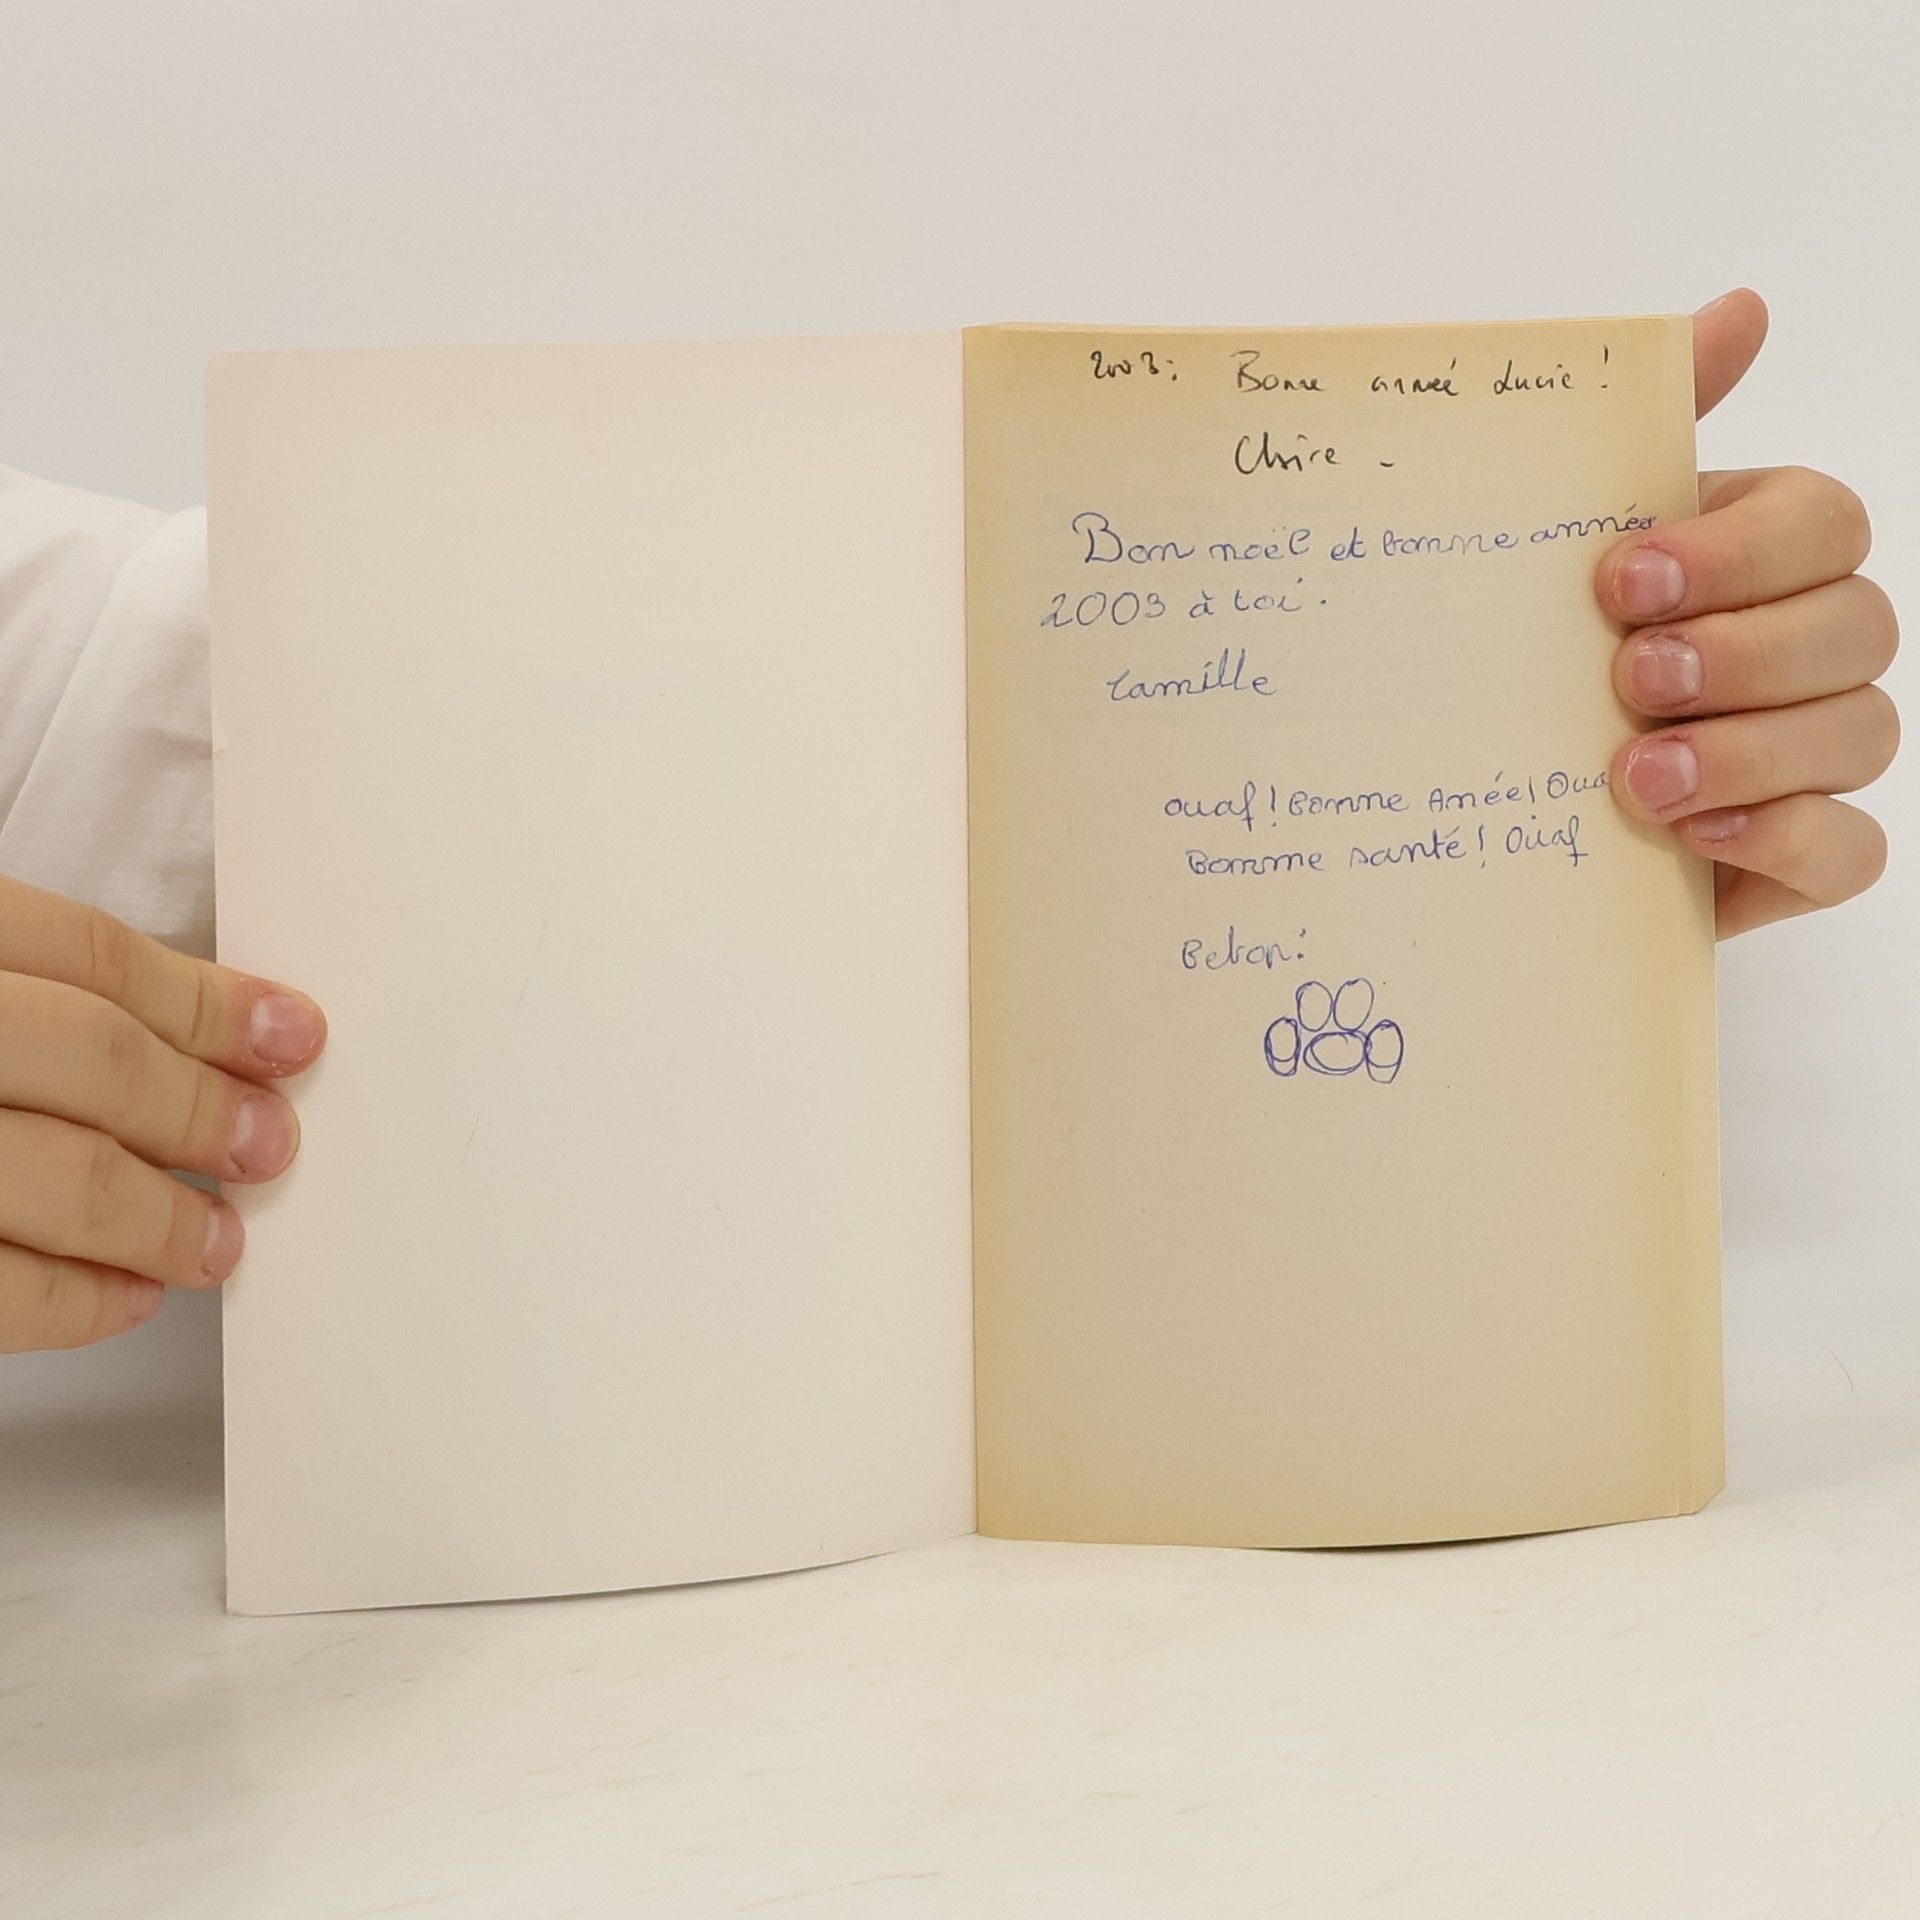 2003: Bonne année Lucie !
Claire -
Bon noël et bonne année
2003 à toi.
Camille
ouaf ! Bonne Anée! Oua
Bonne santé ! Ouaf